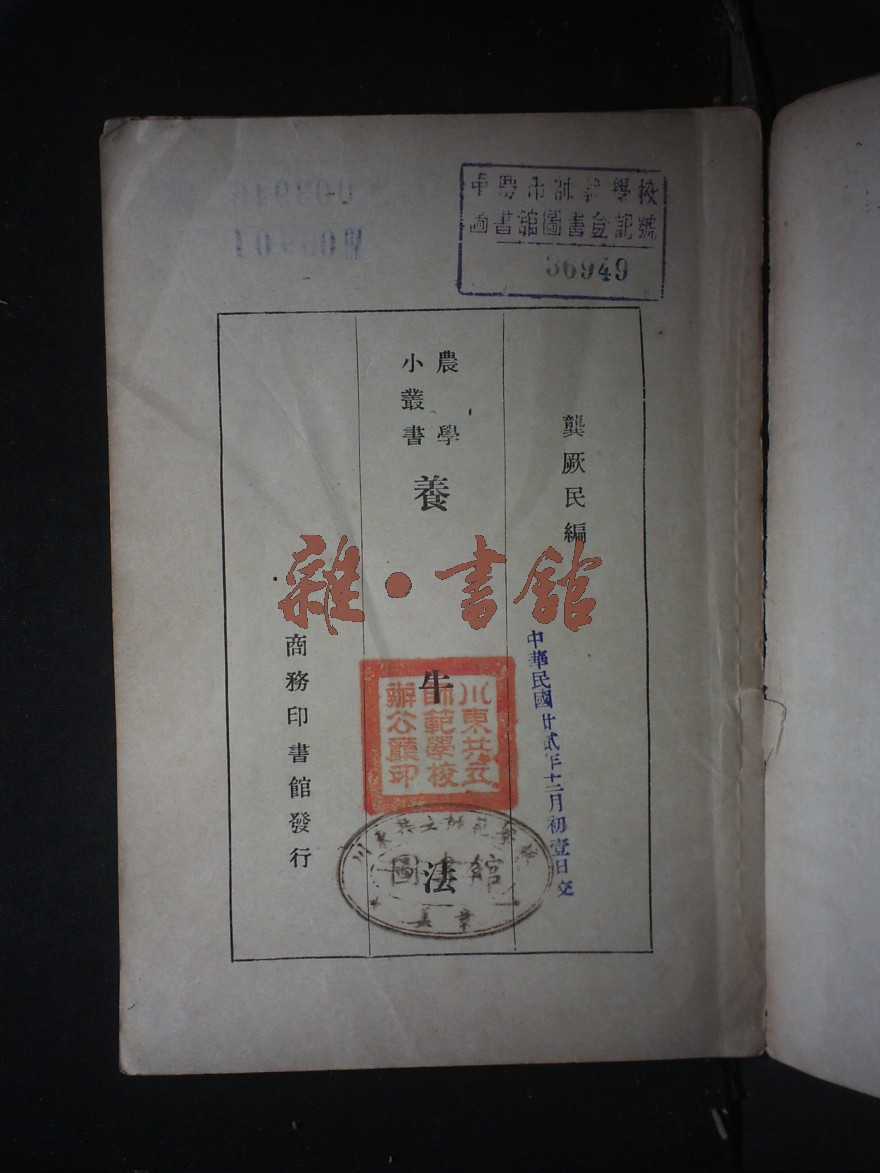 學校
圖書館圖書登記號
36949
龔厥民編
農學
小叢書
養牛法
商務印書館發行
雜·書館
川東共立
師範學校
辦公廳印
中華民國廿貳年十二月初壹日交
川東共立師範學校
圖書館